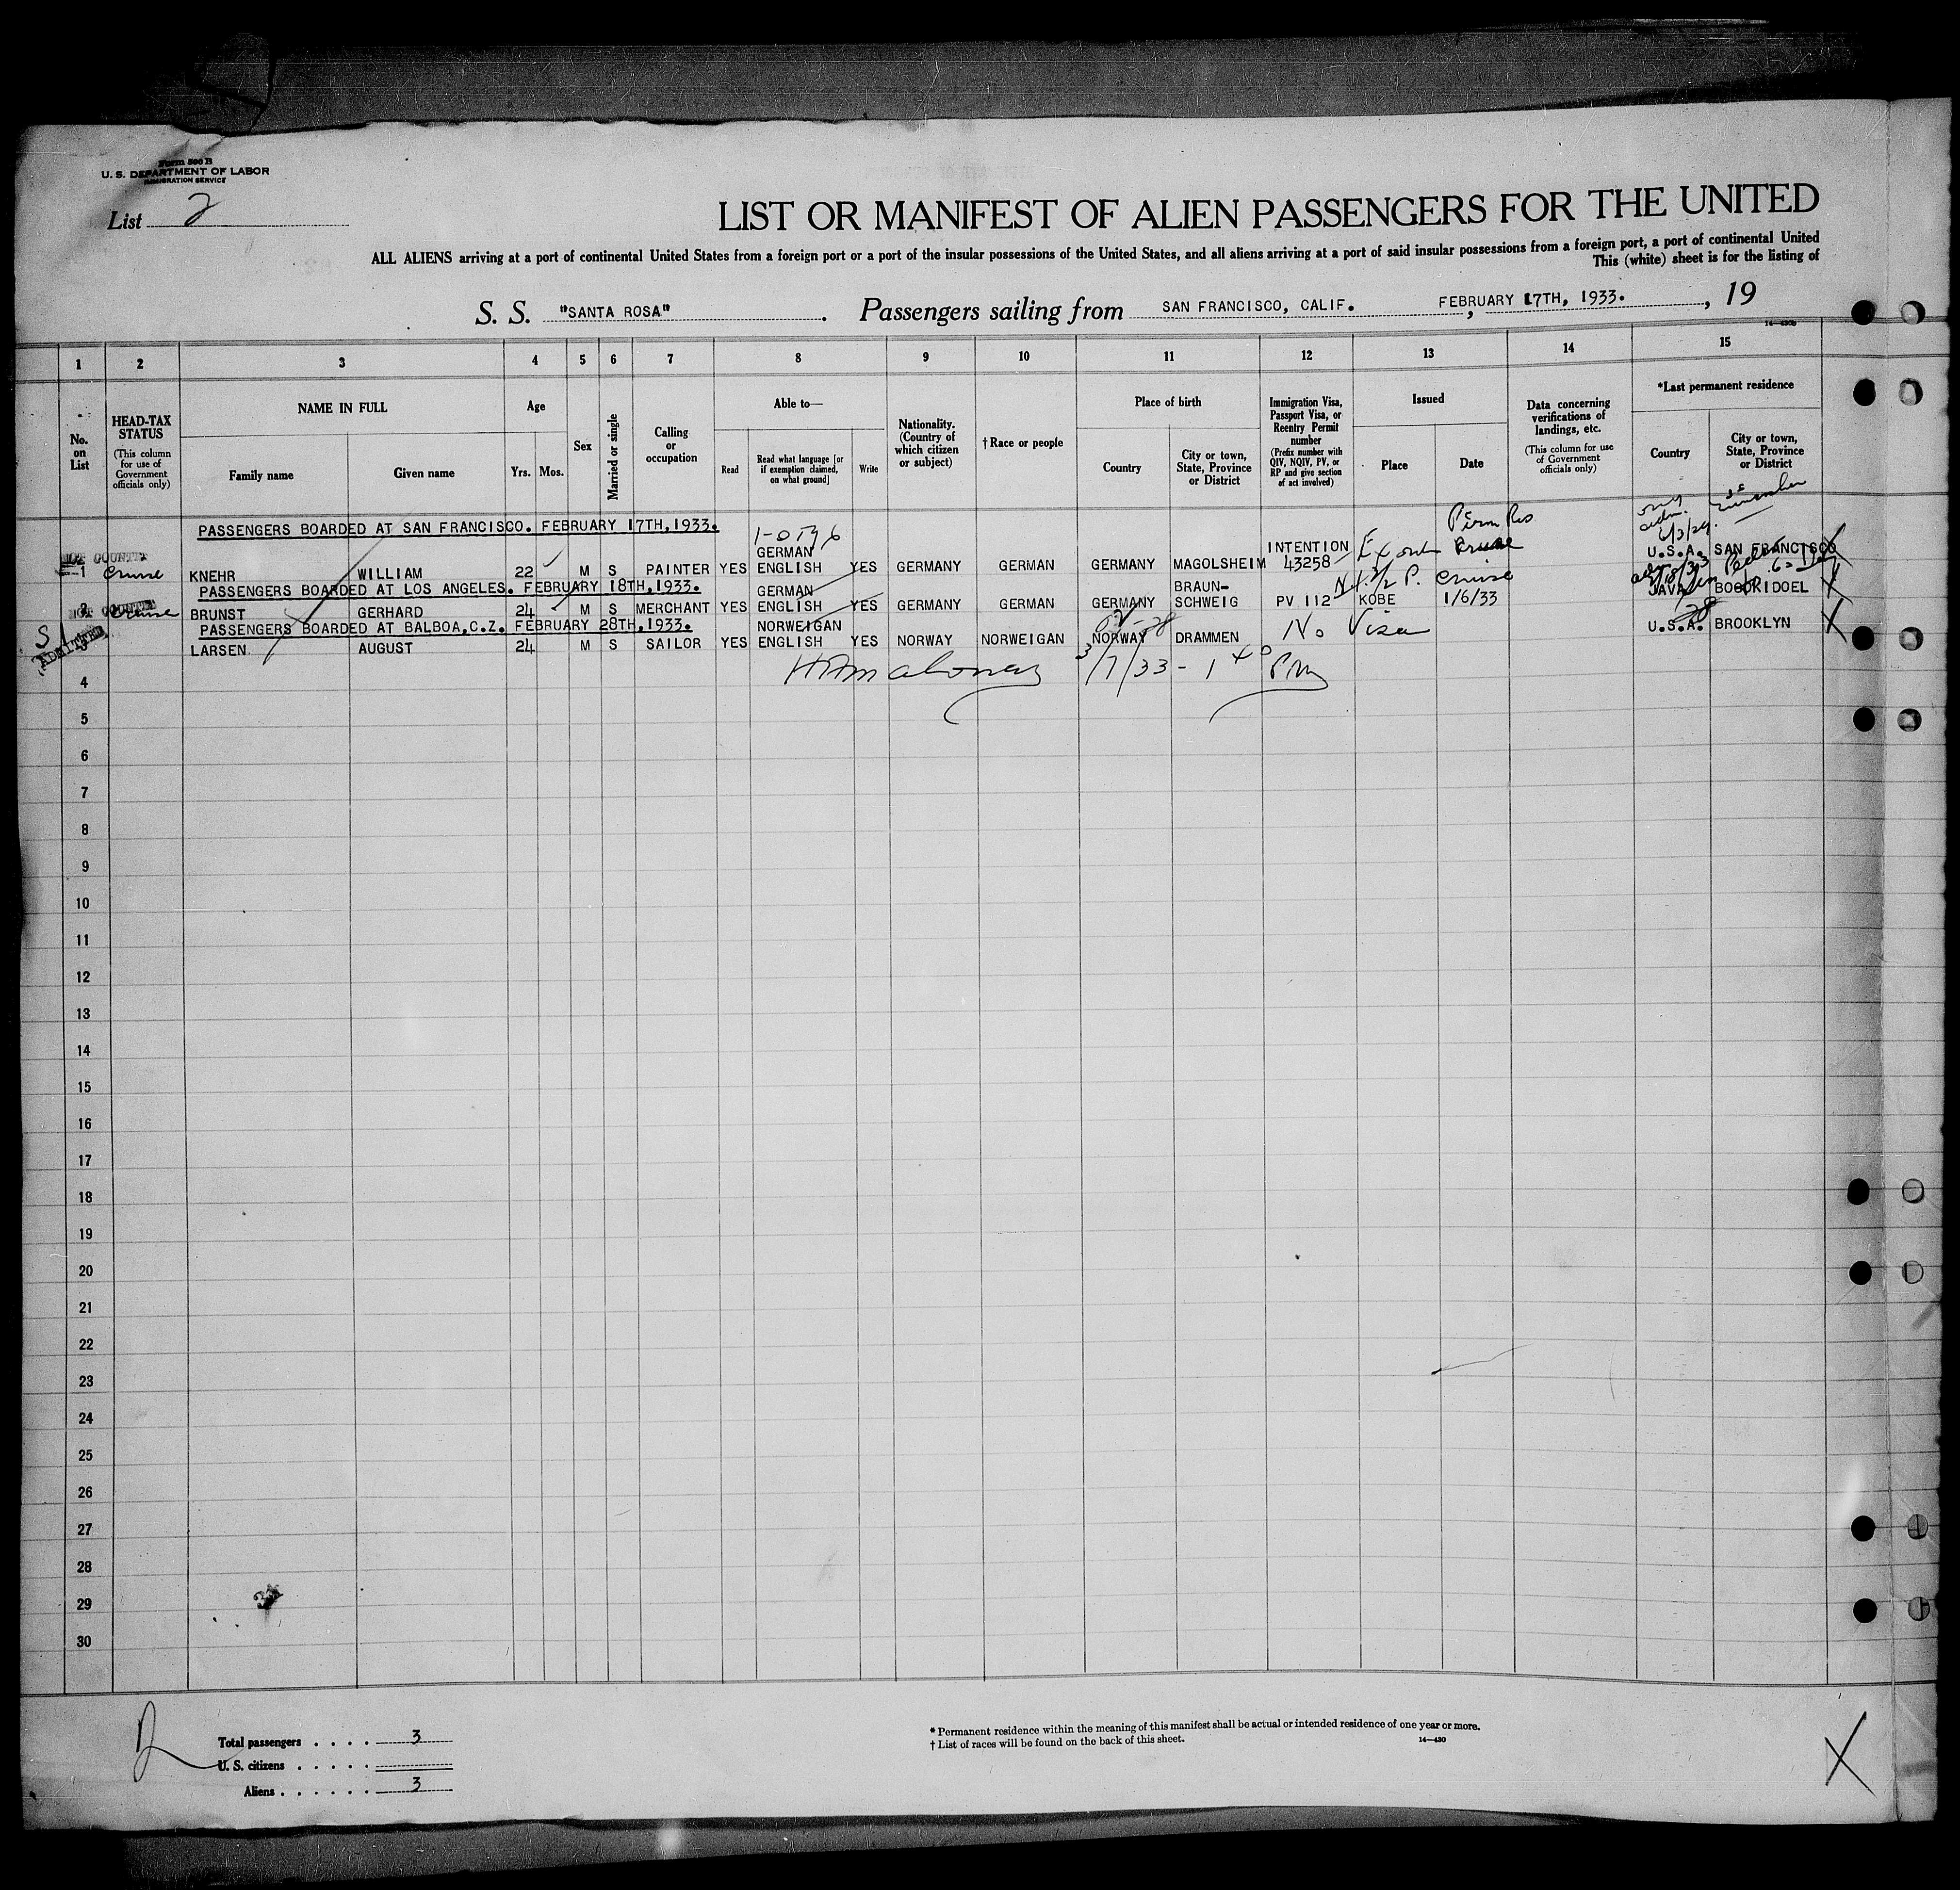 Form 500 B
U. S. DEPARTMENT OF LABOR
IMMIGRATION SERVICE
List 2
LIST OR MANIFEST OF ALIEN PASSENGERS FOR THE UNITED
ALL ALIENS arriving at a port of continental United States from a foreign port or a port of the insular possessions of the United States, and all aliens arriving at a port of said insular possessions from a foreign port, a port of continental United
This (white) sheet is for the listing of
S. S. "SANTA ROSA". Passengers sailing from SAN FRANCISCO, CALIF., FEBRUARY 17TH, 1933., 19
14—430b
1 2 3 4 5 6 7 8 9 10 11 12 13 14 15
No. on List
HEAD-TAX STATUS (This column for use of Government officials only)
NAME IN FULL
Family name Given name
Age
Yrs. Mos.
Sex
Married or single
Calling or occupation
Able to—
Read Read what language [or if exemption claimed, on what ground] Write
Nationality. (Country of which citizen or subject)
† Race or people
Place of birth
Country City or town, State, Province or District
Immigration Visa, Passport Visa, or Reentry Permit number (Prefix number with QIV, NQIV, PV, or RP and give section of act involved)
Issued
Place Date
Data concerning verifications of landings, etc. (This column for use of Government officials only)
*Last permanent residence
Country City or town, State, Province or District
PASSENGERS BOARDED AT SAN FRANCISCO. FEBRUARY 17TH,1933.
Perm Res
1 Cruise KNEHR WILLIAM 22 M S PAINTER YES GERMAN ENGLISH YES GERMANY GERMAN GERMANY MAGOLSHEIM INTENTION 43258 Cruise U.S.A. SAN FRANCISCO
PASSENGERS BOARDED AT LOS ANGELES. FEBRUARY 18TH,1933.
2 Cruise BRUNST GERHARD 24 M S MERCHANT YES GERMAN ENGLISH YES GERMANY GERMAN GERMANY BRAUN-SCHWEIG PV 112 KOBE Cruise 1/6/33 JAVA
PASSENGERS BOARDED AT BALBOA,C.Z. FEBRUARY 28TH,1933.
S I ADMITTED
3 LARSEN AUGUST 24 M S SAILOR YES NORWEIGAN ENGLISH YES NORWAY NORWEIGAN NORWAY DRAMMEN No Visa U.S.A. BROOKLYN
3/7/33 - 1 40 PM
4
5
6
7
8
9
10
11
12
13
14
15
16
17
18
19
20
21
22
23
24
25
26
27
28
29
30
Total passengers . . . . 3
U. S. citizens . . . . .
Aliens . . . . . . 3
* Permanent residence within the meaning of this manifest shall be actual or intended residence of one year or more.
† List of races will be found on the back of this sheet.
14—430